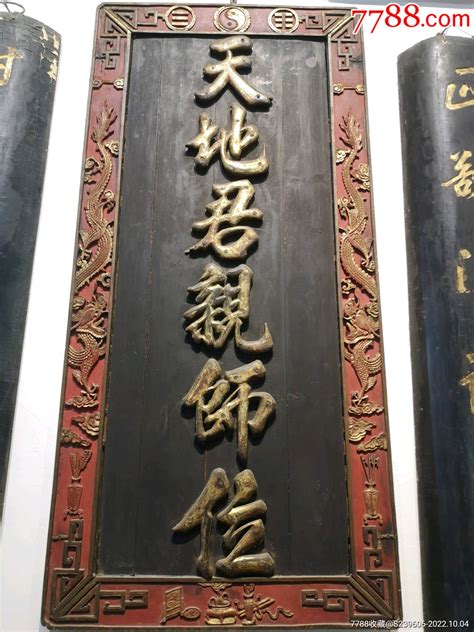 7788.com
天地君親師位
7788收藏@S239605-2022.10.04